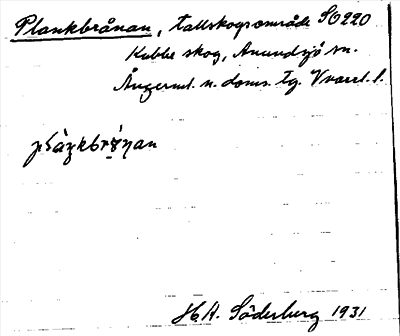 Plankbrånan, tallskogsområde SO220
Kubbe skog, Anundsjö sn.
Ångerml. n. doms. tg. Vvarrl. l.
H. K. Söderberg 1931